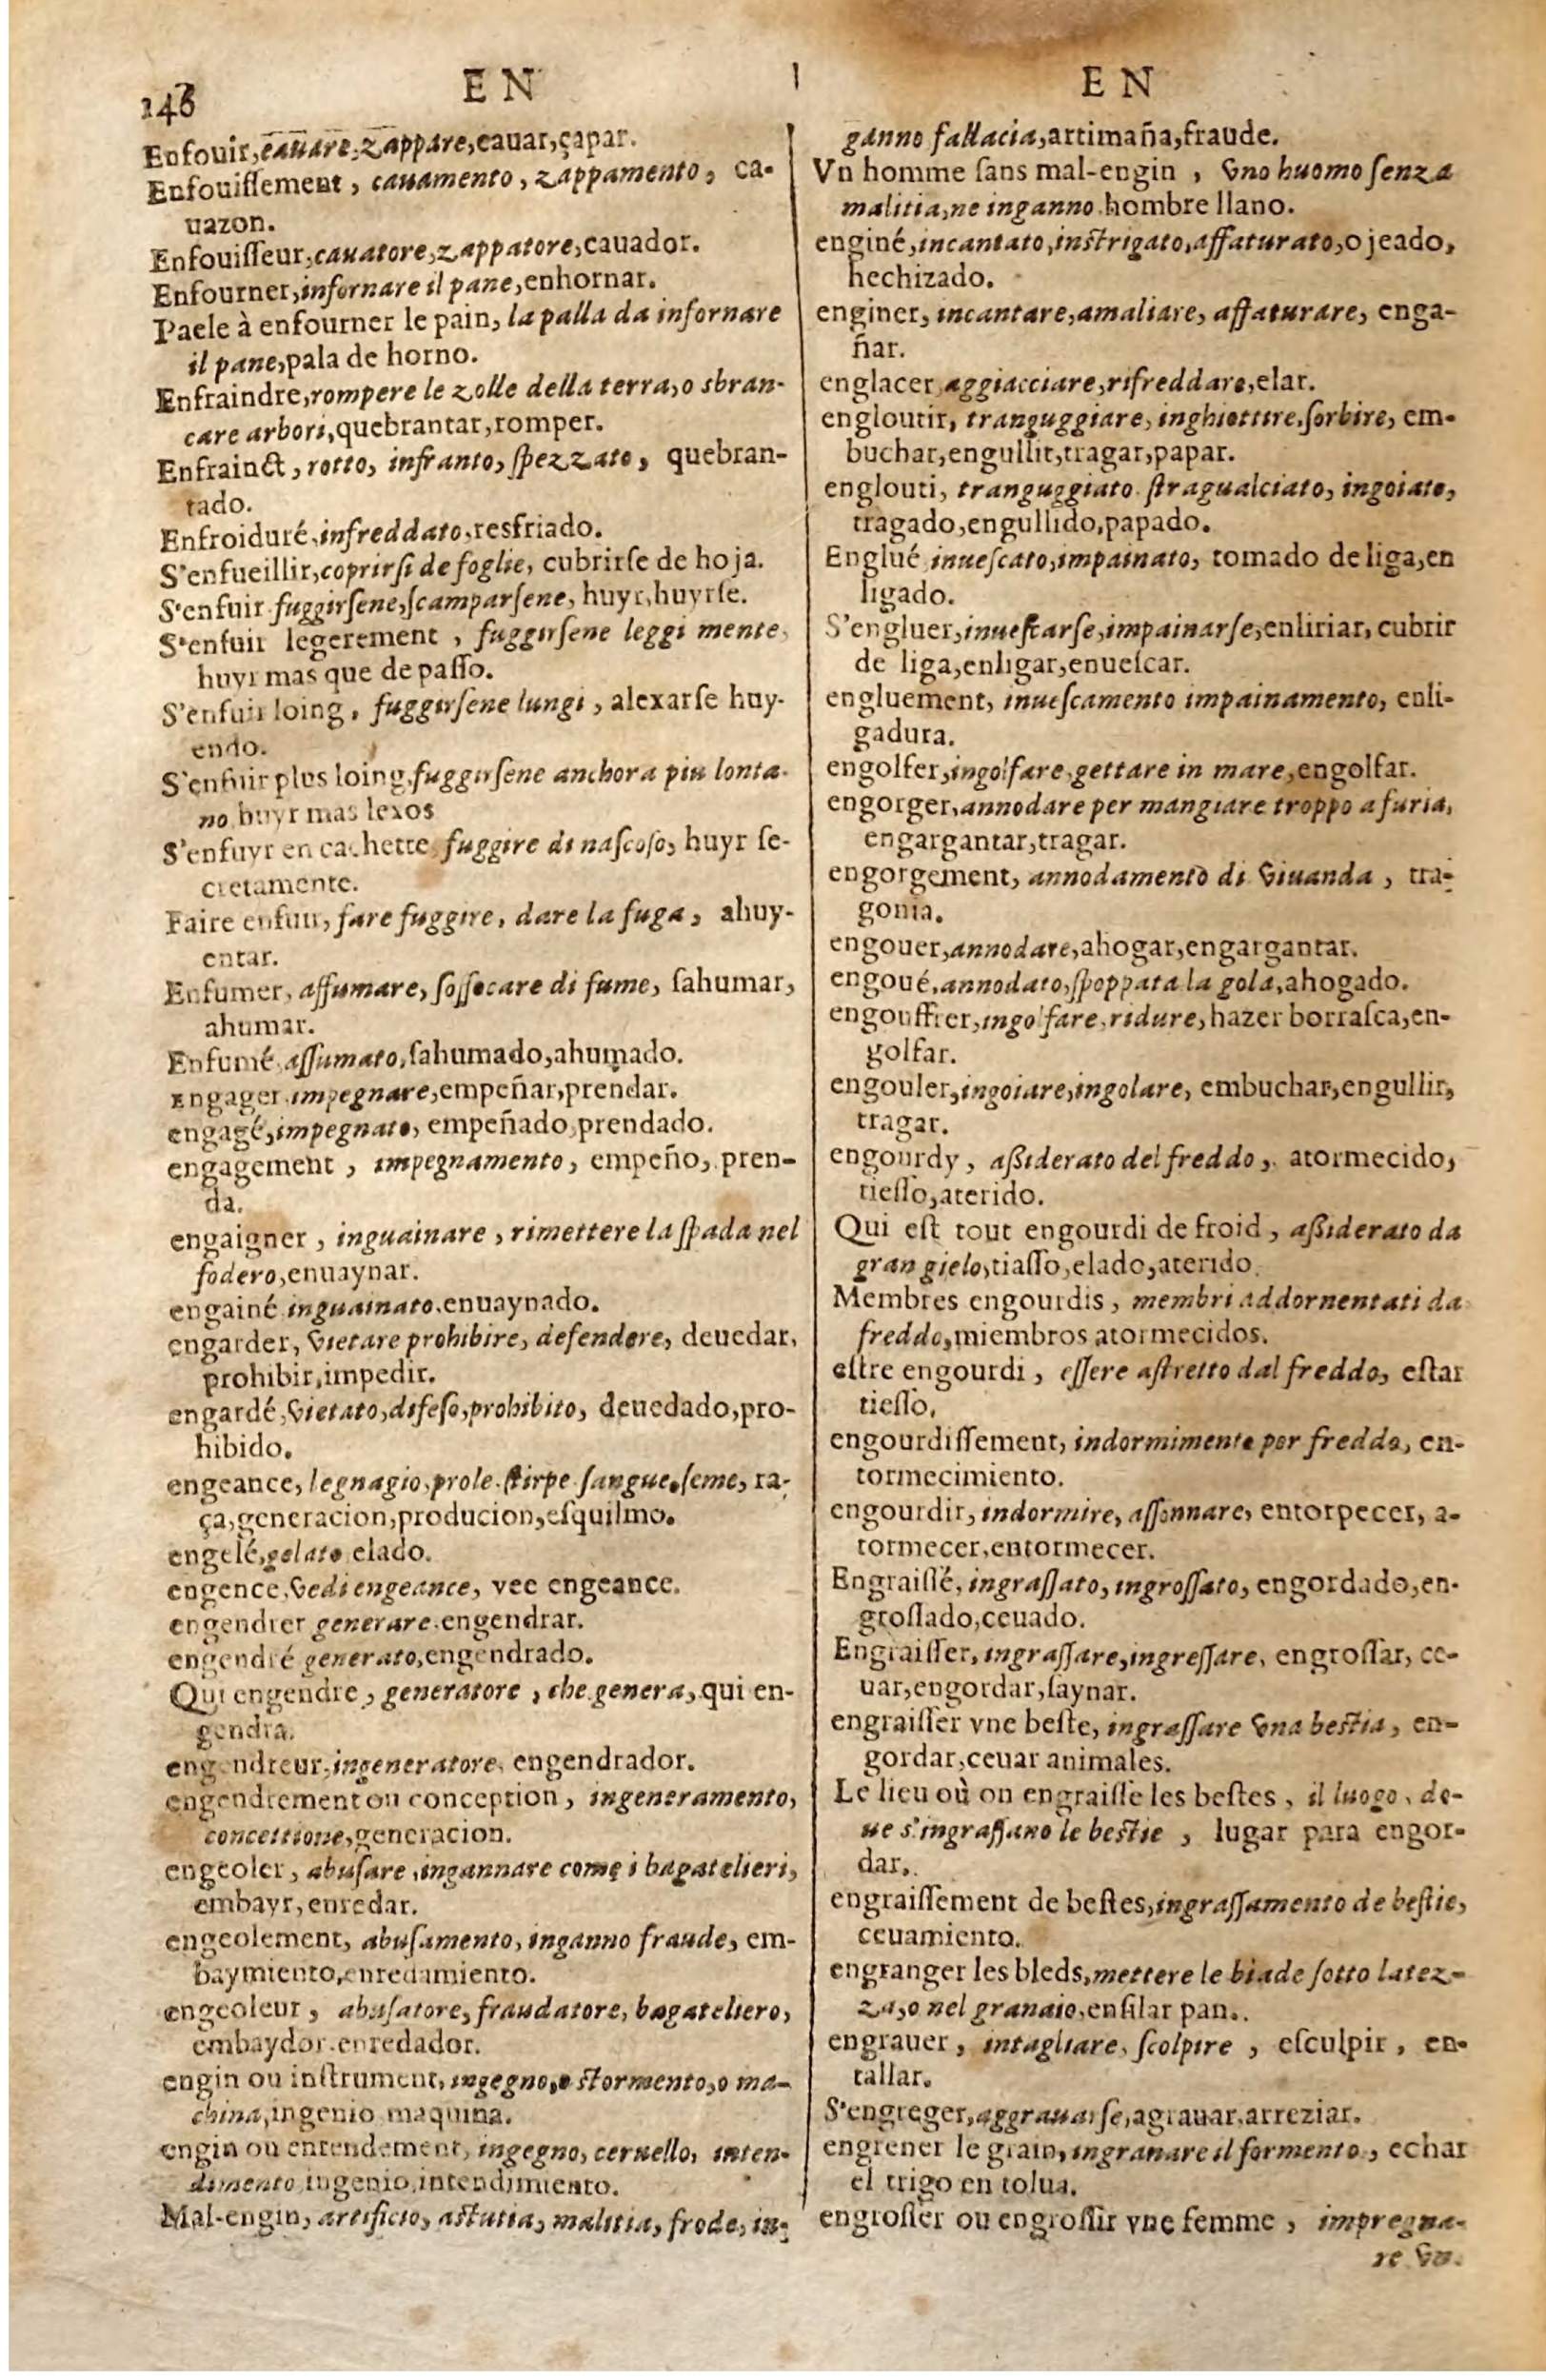 146
EN
Enfouir, cauare, zappare, cauar, çapar.
Enfouiſſement, cauamento, zappamento, ca-
uazon.
Enfouiſſeur, cauatore, zappatore, cauador.
Enfourner, infornare il pane, enhornar.
Paele à enfourner le pain, la palla da infornare
il pane, pala de horno.
Enfraindre, rompere le zolle della terra, o sbran-
care arbori, quebrantar, romper.
Enfrainct, rotto, infranto, ſpezzato, quebran-
tado.
Enfroiduré, infreddato, resfriado.
S'enfueillir, coprirſi de foglie, cubrirſe de hoja.
S'enfuir fuggirſene, ſcamparſene, huyr, huyrſe.
S'enfuir legerement, fuggirſene leggi mente,
huyr mas que de paſſo.
S'enfuir loing, fuggirſene lungi, alexarſe huy-
endo.
S'enfuir plus loing, fuggirſene anchora piu lonta-
no huyr mas lexos
S'enfuyr en cachette fuggire di naſcoſo, huyr ſe-
cretamente.
Faire enfuir, fare fuggire, dare la fuga, ahuy-
entar.
Enfumer, affumare, ſoffocare di fume, ſahumar,
ahumar.
Enfumé, aſſumato, ſahumado, ahumado.
Engager impegnare, empeñar, prendar.
engagé, impegnato, empeñado, prendado.
engagement, impegnamento, empeño, pren-
da.
engaigner, inguainare, rimettere la ſpada nel
fodero, enuaynar.
engainé inguainato. enuaynado.
engarder, vietare prohibire, defendere, deuedar,
prohibir, impedir.
engardé, vietato, difeſo, prohibito, deuedado, pro-
hibido.
engeance, legnagio, prole. ſtirpe ſangue, ſeme, ra-
ça, generacion, producion, eſquilmo.
engelé, gelato elado.
engence, vedi engeance, vee engeance.
engendrer generare. engendrar.
engendré generato, engendrado.
Qui engendre, generatore, che genera, qui en-
gendra.
engendreur, ingeneratore, engendrador.
engendrement ou conception, ingeneramento,
concettione, generacion.
engeoler, abuſare, ingannare come i bagatelieri,
embayr, enredar.
engeolement, abuſamento, inganno fraude, em-
baymiento, enredamiento.
engeoleur, abuſatore, fraudatore, bagateliero,
embaydor. enredador.
engin ou inſtrument, ingegno, o ſtormento, o ma-
china, ingenio maquina.
engin ou entendement, ingegno, ceruello, inten-
dimento ingenio, intendimiento.
Mal-engin, artificio, aſtutia, malitia, frode, in-
EN
ganno fallacia, artimaña, fraude.
Vn homme ſans mal-engin, vno huomo ſenza
malitia, ne inganno hombre llano.
enginé, incantato, inſtrigato, affaturato, ojeado,
hechizado.
enginer, incantare, amaliare, affaturare, enga-
ñar.
englacer aggiacciare, rifreddare, elar.
engloutir, tranguggiare, inghiottire, ſorbire, em-
buchar, engullir, tragar, papar.
englouti, tranguggiato ſtragualciato, ingoiato,
tragado, engullido, papado.
Englué inueſcato, impainato, tomado de liga, en
ligado.
S'engluer, inueſcarſe, impainarſe, enliriar, cubrir
de liga, enligar, enueſcar.
engluement, inueſcamento impainamento, enli-
gadura.
engolfer, ingolfare, gettare in mare, engolfar.
engorger, annodare per mangiare troppo a furia,
engargantar, tragar.
engorgement, annodamento di viuanda, tra-
gonia.
engouer, annodare, ahogar, engargantar.
engoué, annodato, ſpoppata la gola, ahogado.
engouffrer, ingolfare, ridure, hazer borraſca, en-
golfar.
engouler, ingoiare, ingolare, embuchar, engullir,
tragar.
engourdy, aßiderato del freddo, atormecido,
tieſſo, aterido.
Qui eſt tout engourdi de froid, aßiderato da
gran gielo, tiaſſo, elado, aterido.
Membres engourdis, membri addornentati da
freddo, miembros atormecidos.
eſtre engourdi, eſſere aſtretto dal freddo, eſtar
tieſſo,
engourdiſſement, indormimento per freddo, en-
tormecimiento.
engourdir, indormire, aſſonnare, entorpecer, a-
tormecer, entormecer.
Engraiſſé, ingraſſato, ingroſſato, engordado, en-
groſſado, ceuado.
Engraiſſer, ingraſſare, ingreſſare, engroſſar, ce-
uar, engordar, ſaynar.
engraiſſer vne beſte, ingraſſare vna beſtia, en-
gordar, ceuar animales.
Le lieu où on engraiſſe les beſtes, il luogo, do-
ue s'ingraſſano le beſtie, lugar para engor-
dar.
engraiſſement de beſtes, ingraſſamento de beſtie,
ceuamiento.
engranger les bleds, mettere le biade ſotto latez-
za, o nel granaio, enſilar pan.
engrauer, intagliare, ſcolpire, eſculpir, en-
tallar.
S'engreger, aggrauarſe, agrauar, arreziar.
engrener le grain, ingranare il formento, echar
el trigo en tolua.
engroſſer ou engroſſir vne femme, impregna-
re vn.